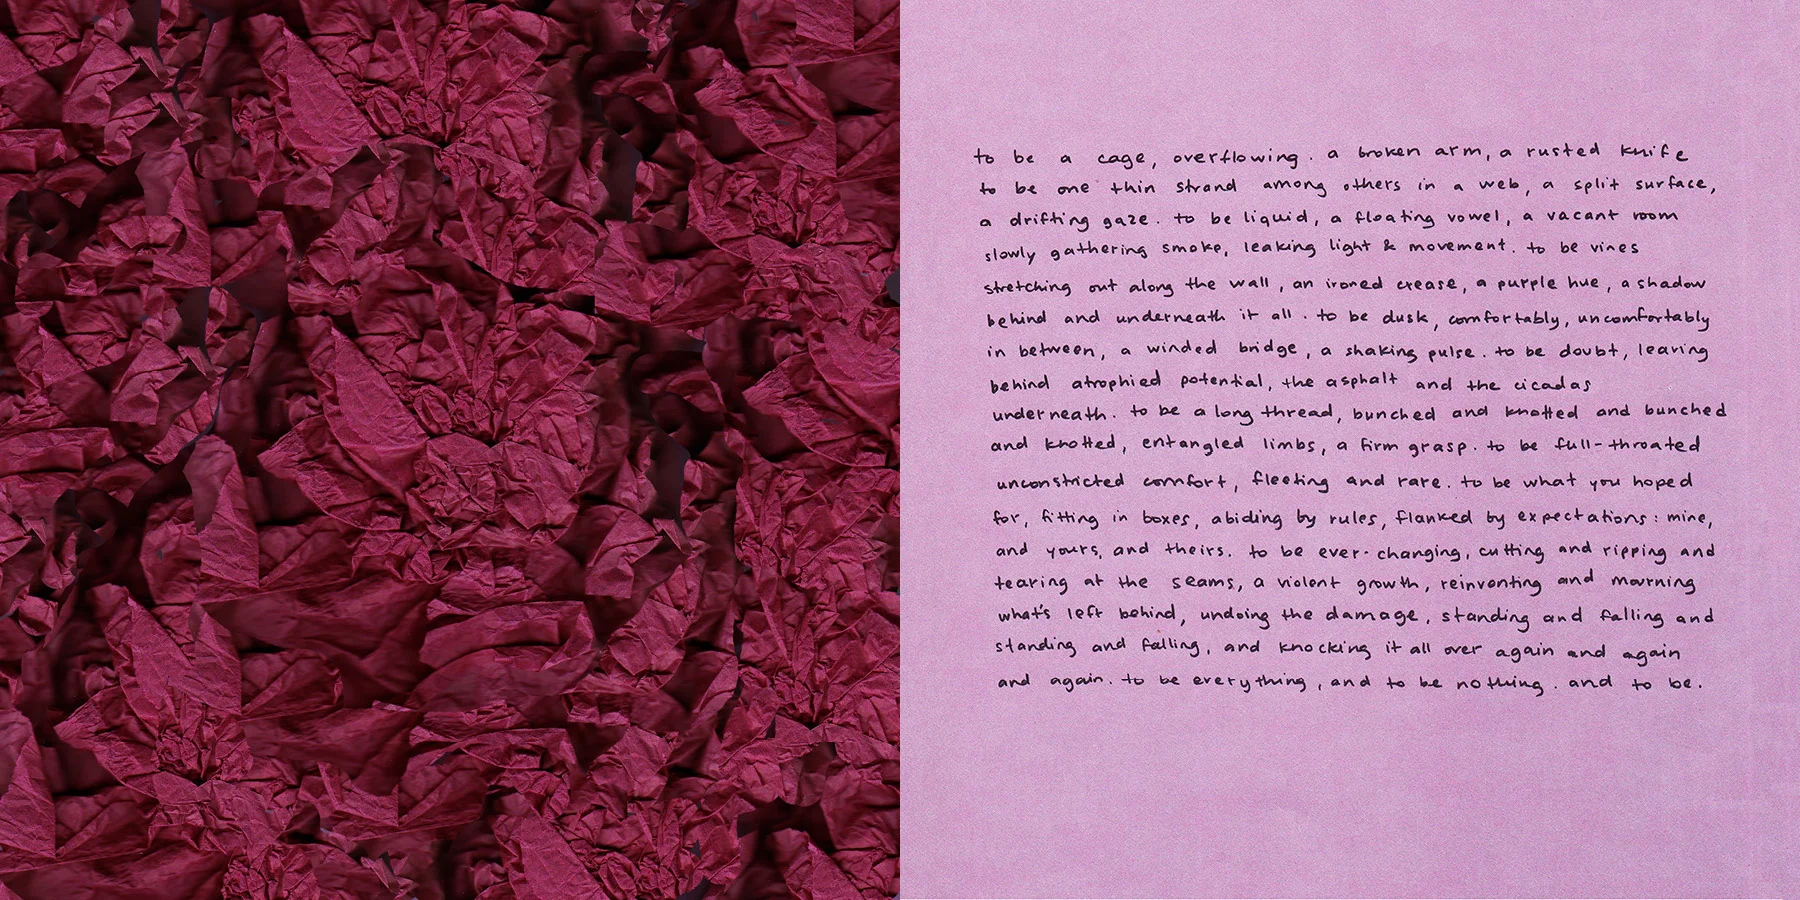 to be a cage, overflowing. a broken arm, a rusted knife
to be one thin strand among others in a web, a split surface,
a drifting gaze. to be liquid, a floating vowel, a vacant room
slowly gathering smoke, leaking light & movement. to be vines
stretching out along the wall, an ironed crease, a purple hue, a shadow
behind and underneath it all. to be dusk, comfortably, uncomfortably
in between, a winded bridge, a shaking pulse. to be doubt, leaving
behind atrophied potential, the asphalt and the cicadas
underneath. to be a long thread, bunched and knotted and bunched
and knotted, entangled limbs, a firm grasp. to be full-throated
unconstricted comfort, fleeting and rare. to be what you hoped
for, fitting in boxes, abiding by rules, flanked by expectations: mine,
and yours, and theirs. to be ever-changing, cutting and ripping and
tearing at the seams, a violent growth, reinventing and mourning
what's left behind, undoing the damage, standing and falling and
standing and falling, and knocking it all over again and again
and again. to be everything, and to be nothing. and to be.